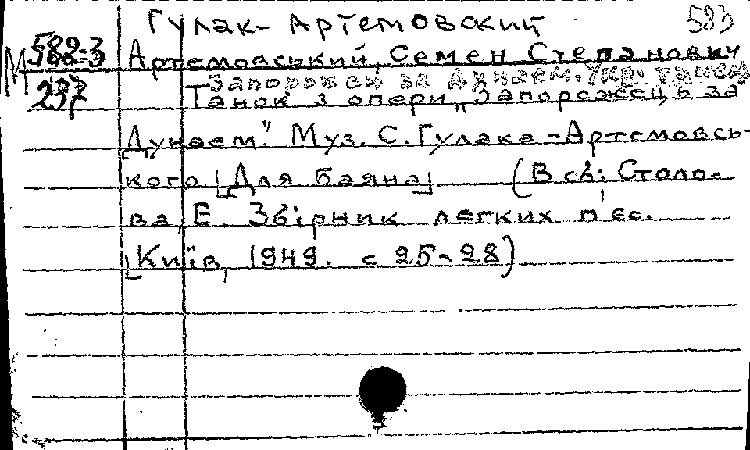 Гулак-Артемовский 583
М 588-3 Артемовський, Семен Степанович
237 Запорожец за Дунаем. Укр. танец
Танок з опери „Запорожець за
Дунаєм". Муз. С. Гулака-Артемовсь-
кого [Для баяна] (В сб: Столо-
ва, Е. Збірник легких п'єс.
[Київ, 1949. с 25-28)